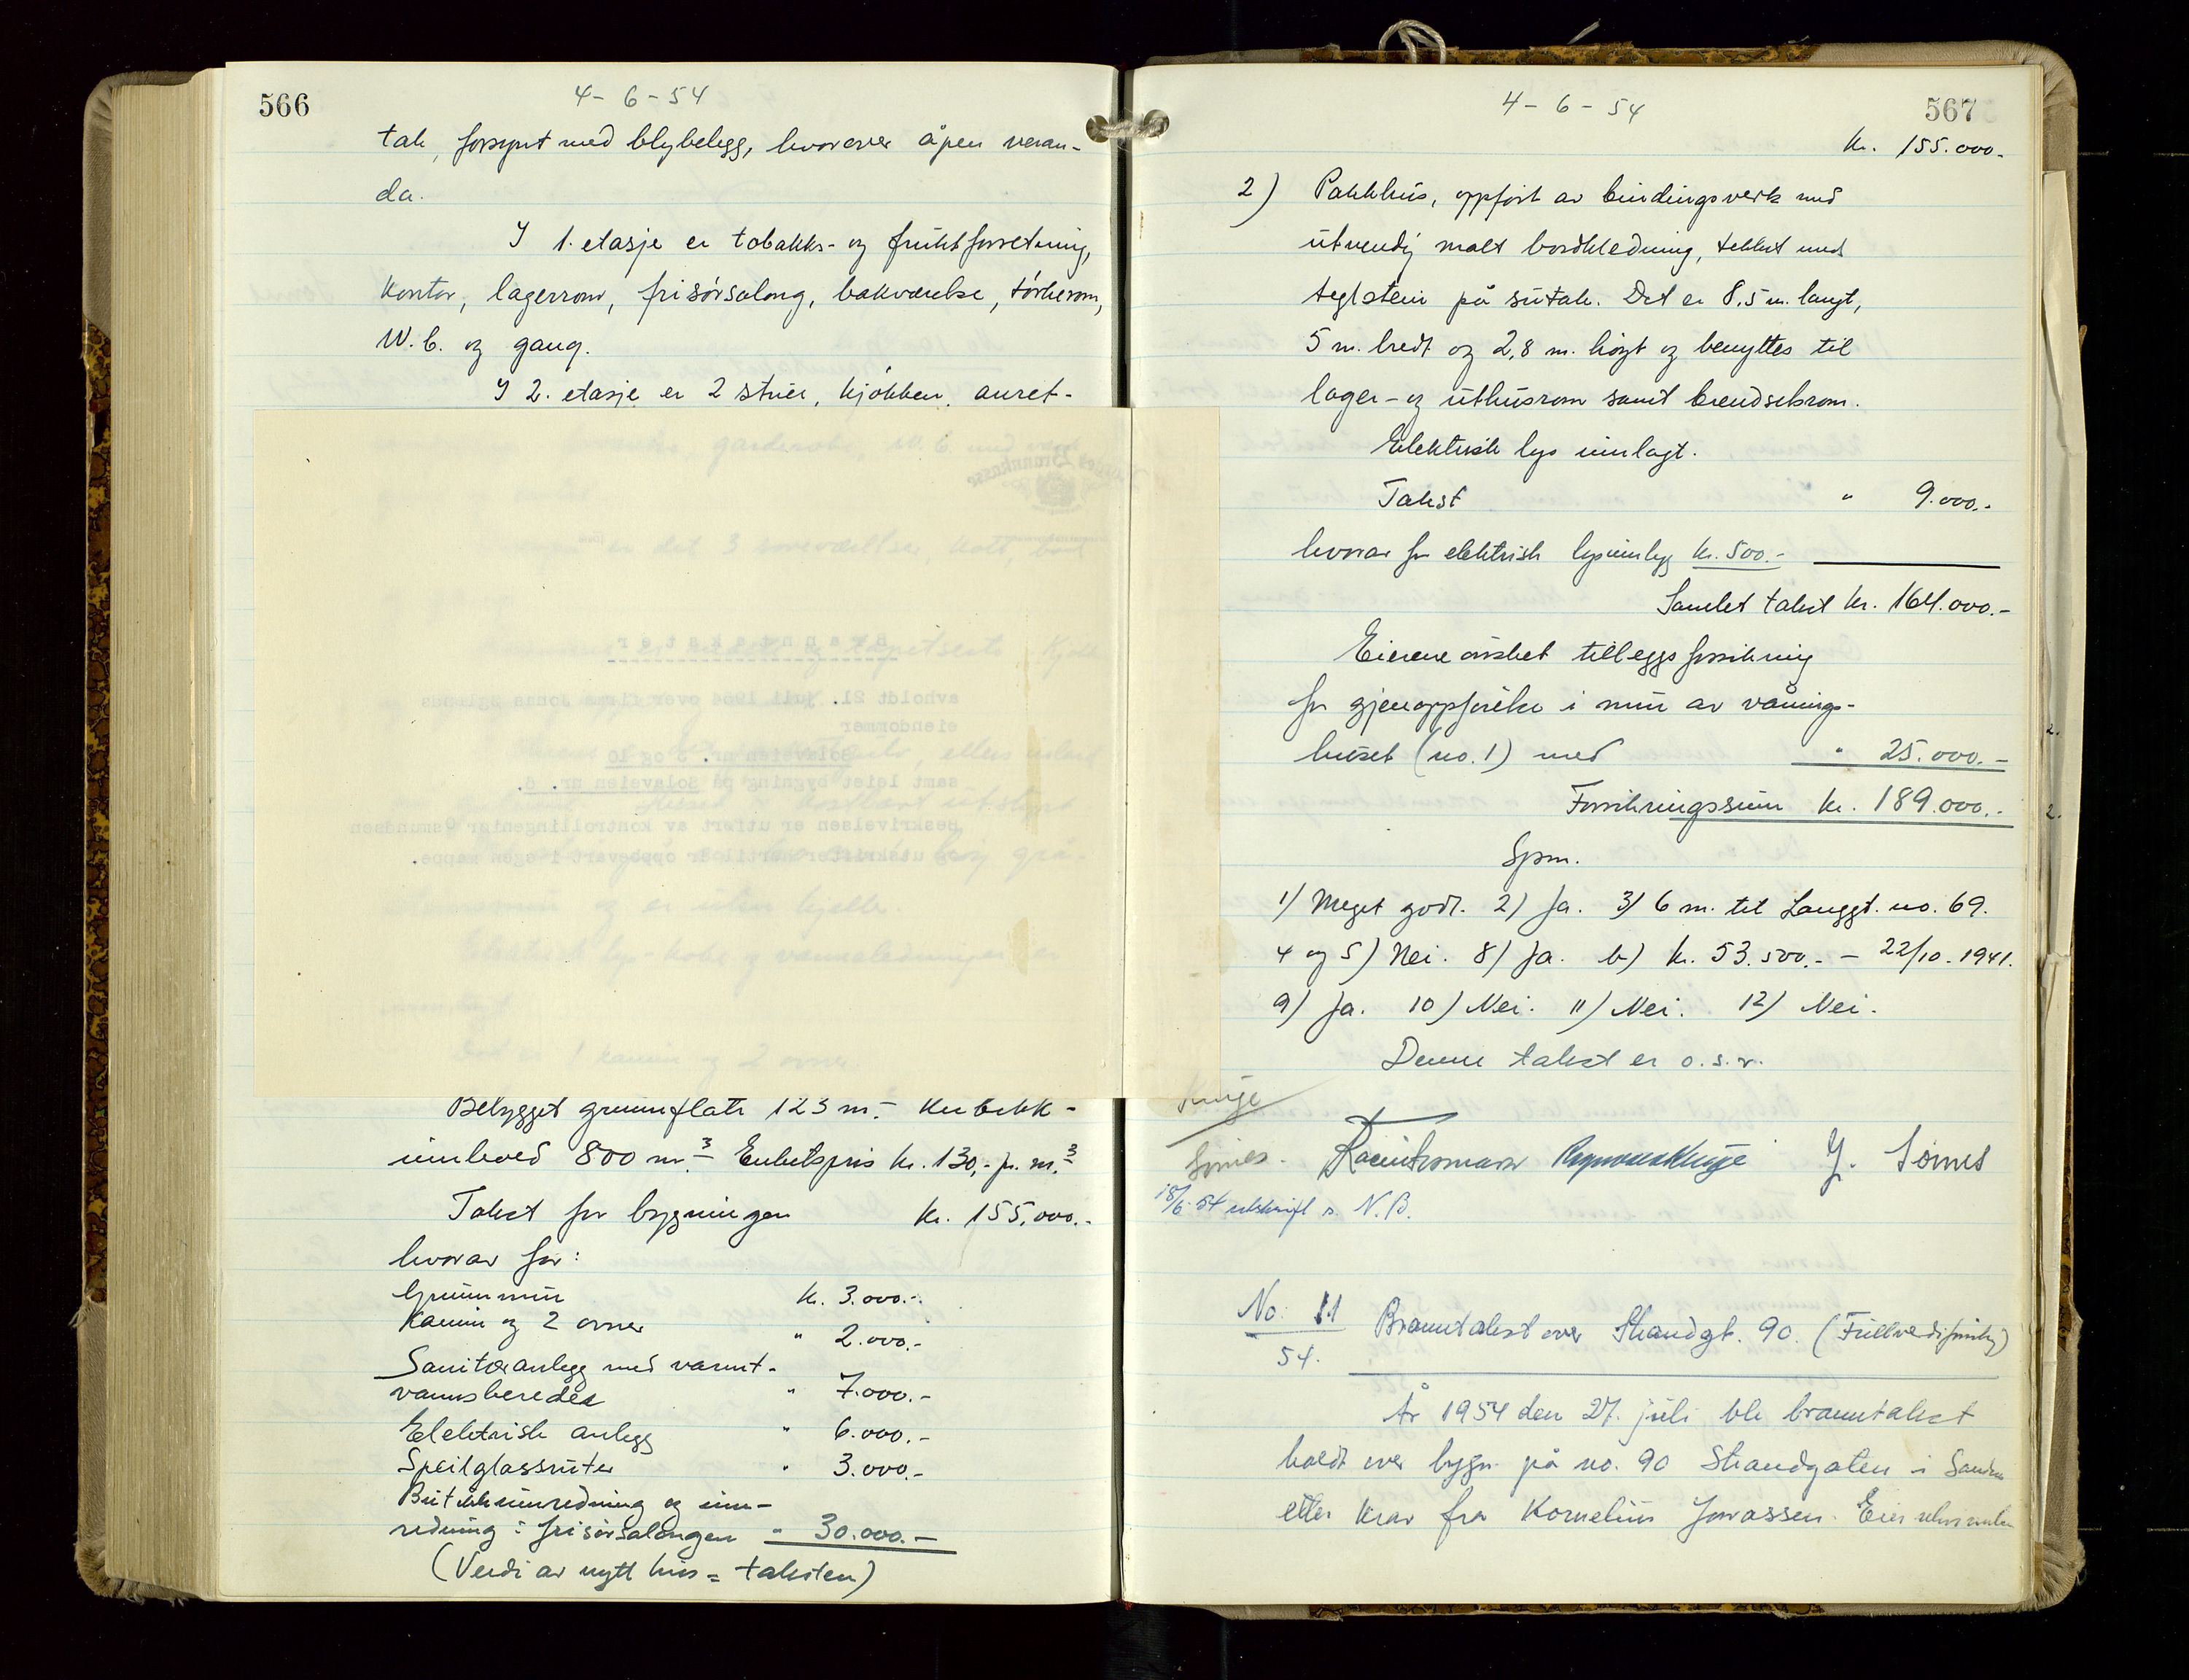 566
4-6-54
tak, forsynt med blybelegg, hvorover åpen veran-
da.
I 1. etasje er tobakks- og fruktforretning,
kontor, lagerrom, frisørsalong, bakværelse, tørkerom,
W.C. og gang.
I 2. etasje er 2 stuer, kjøkken, anret-
garderobe, W.C. med vask
er det 3 soveværelser, kott, bad
Branntakster
avholdt 21. juli 1964 over firma Jonas Øglænds
eiendommer
Solaveien nr. 8 og 10
samt leiet bygning på Solaveien nr. 6.
Beskrivelsen er utført av kontrollingeniør Osmundsen
og utskrifter hertil er oppbevart i egen mappe.
og er uten kjeller.
Elektrisk lys- koke og varmeledninger er
innlagt
Det er 1 kamin og 2 ovner
Bebygget grunnflate 123 m.² Kubikk-
innhold 800 m.³ Enhetspris kr. 130,- pr. m.³
Takst for bygningen kr. 155.000.-
hvorav for:
Grunnmur kr. 3.000.-
Kamin og 2 ovner " 2.000.-
Sanitæranlegg med varmt-
vannsbereder " 7.000.-
Elektrisk anlegg " 6.000.-
Speilglassruter " 3.000.-
Butikkinnredning og inn-
redning i frisørsalongen " 30.000.-
(Verdi av nytt hus = taksten)
567
4-6-54
Kr. 155.000-
2) Pakkhus, oppført av bindingsverk med
utvendig malt bordkledning, tekket med
teglstein på sutak. Det er 8,5 m. langt,
5 m. bredt og 2,8 m. høgt og benyttes til
lager- og uthusrom samt brendselsrom.
Elektrisk lys innlagt.
Takst " 9.000.-
hvorav for elektrisk lysinnlegg kr. 500.-
Samlet takst kr. 164.000.-
Eierene ønsket tilleggsforsikring
for gjenoppførelse i mur av vånings-
huset (no. 1) med " 25.000.-
Forsikringssum kr. 189.000.-
Spm.
1) Meget godt. 2) Ja. 3) 6 m. til Langgt. no. 69.
4 og 5) Nei. 8) Ja. b) kr. 53.500.- - 22/10.1941.
9) Ja. 10) Nei. 11) Nei. 12) Nei.
Denne takst er o.s.v.
Kluge
Sømes. Y. Sømes
18/6-54 utskrift s. N.B.
No. 11 Branntakst over Strandgt. 90. (Fullverdiforsikring)
54.
År 1954 den 27. juli ble branntakst
holdt over bygn. på no. 90 Strandgaten i Sandnes
etter krav fra Kornelius Jonassen. Eier